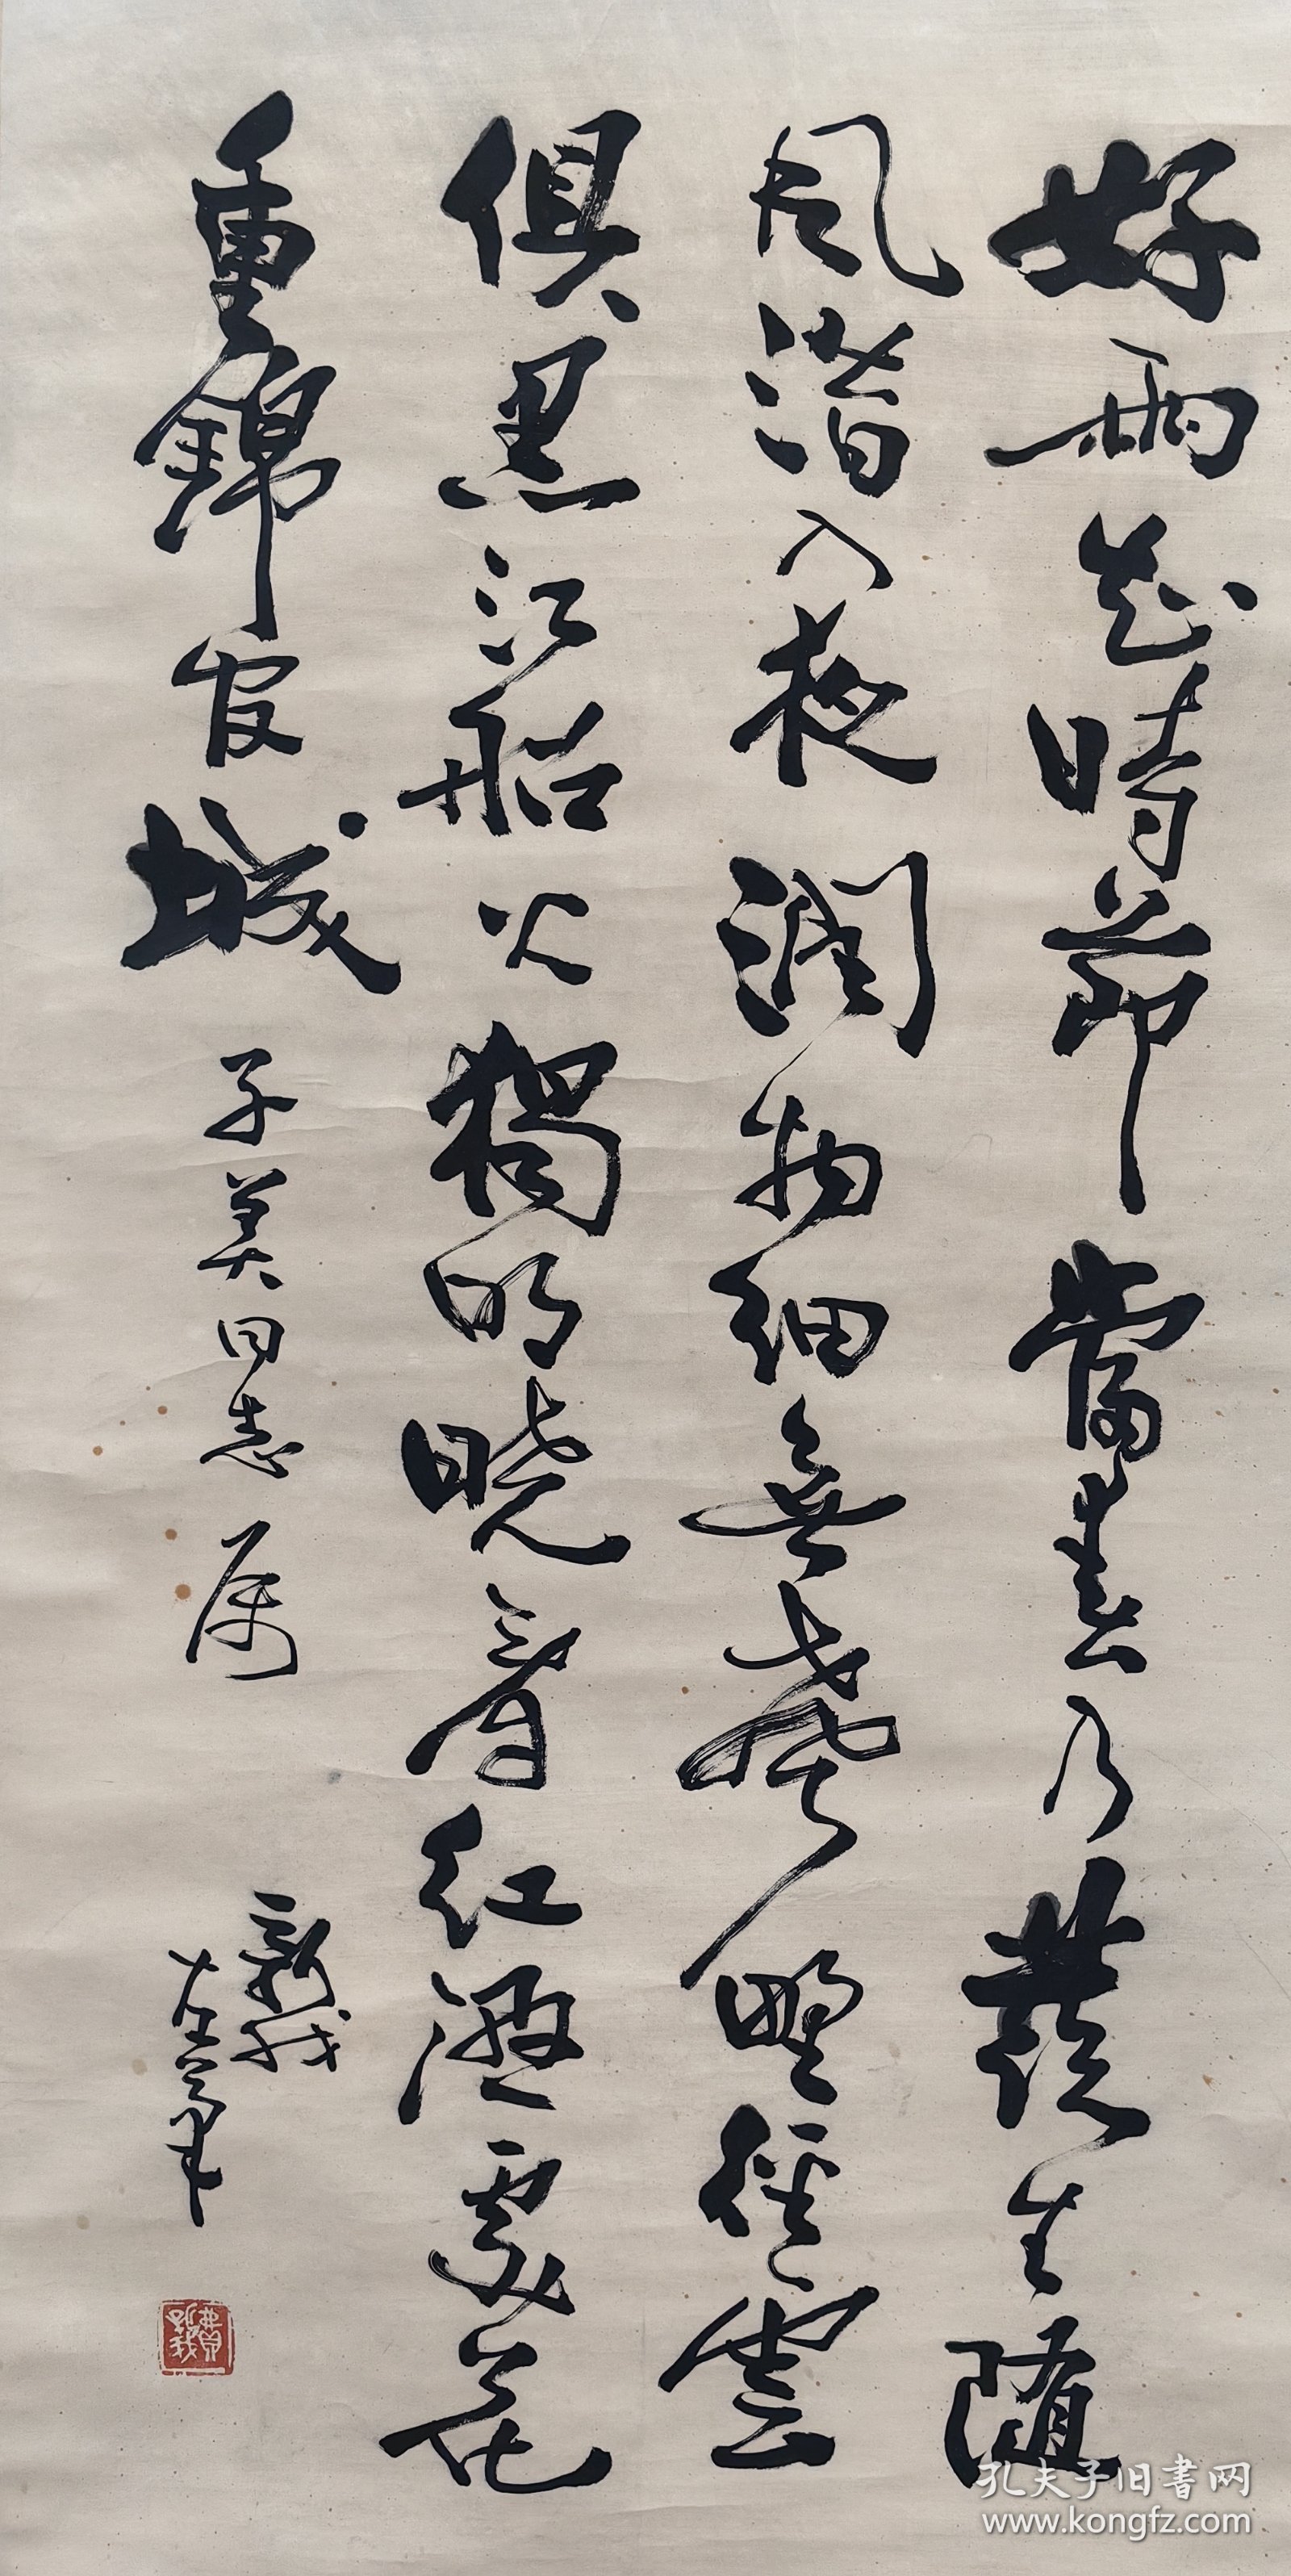 好雨知時節當春乃發生随
風潛入夜潤物細無聲野徑雲
俱黑江船火獨明曉看紅濕處花
重錦官城 子美同志属
新我左筆
費新我
孔夫子旧書网
www.kongfz.com